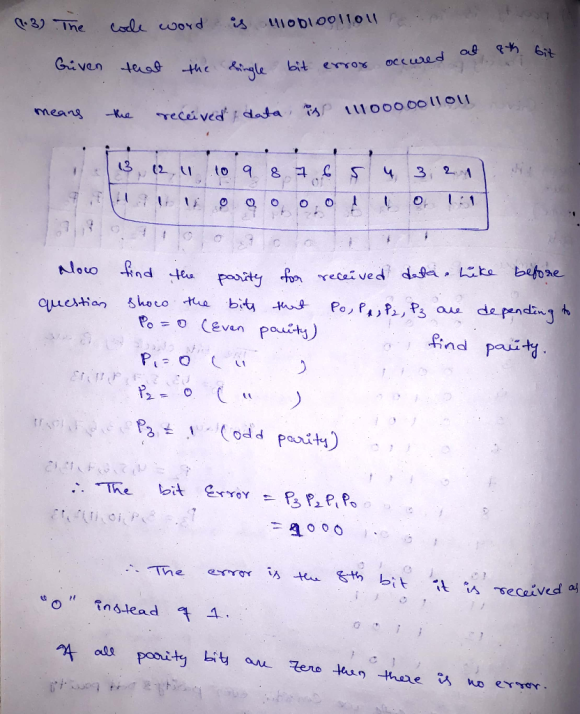 Q.3) The code word is 1110010011011
Given that the single bit error occured at 8th bit
means the received data is 1110000011011
13 12 11 10 9 8 7 6 5 4 3 2 1
1 1 1 0 0 0 0 0 1 1 0 1 1
Now find the parity for received data. Like before
question show the bits that P0, P1, P2, P3 are depending to
find parity.
P0 = 0 (Even parity)
P1 = 0 ( " )
P2 = 0 ( " )
P3 = 1 (odd parity)
∴ The bit Error = P3 P2 P1 P0
= 1000
∴ The error is the 8th bit it is received as
"0" instead of 1.
If all parity bits are zero then there is no error.